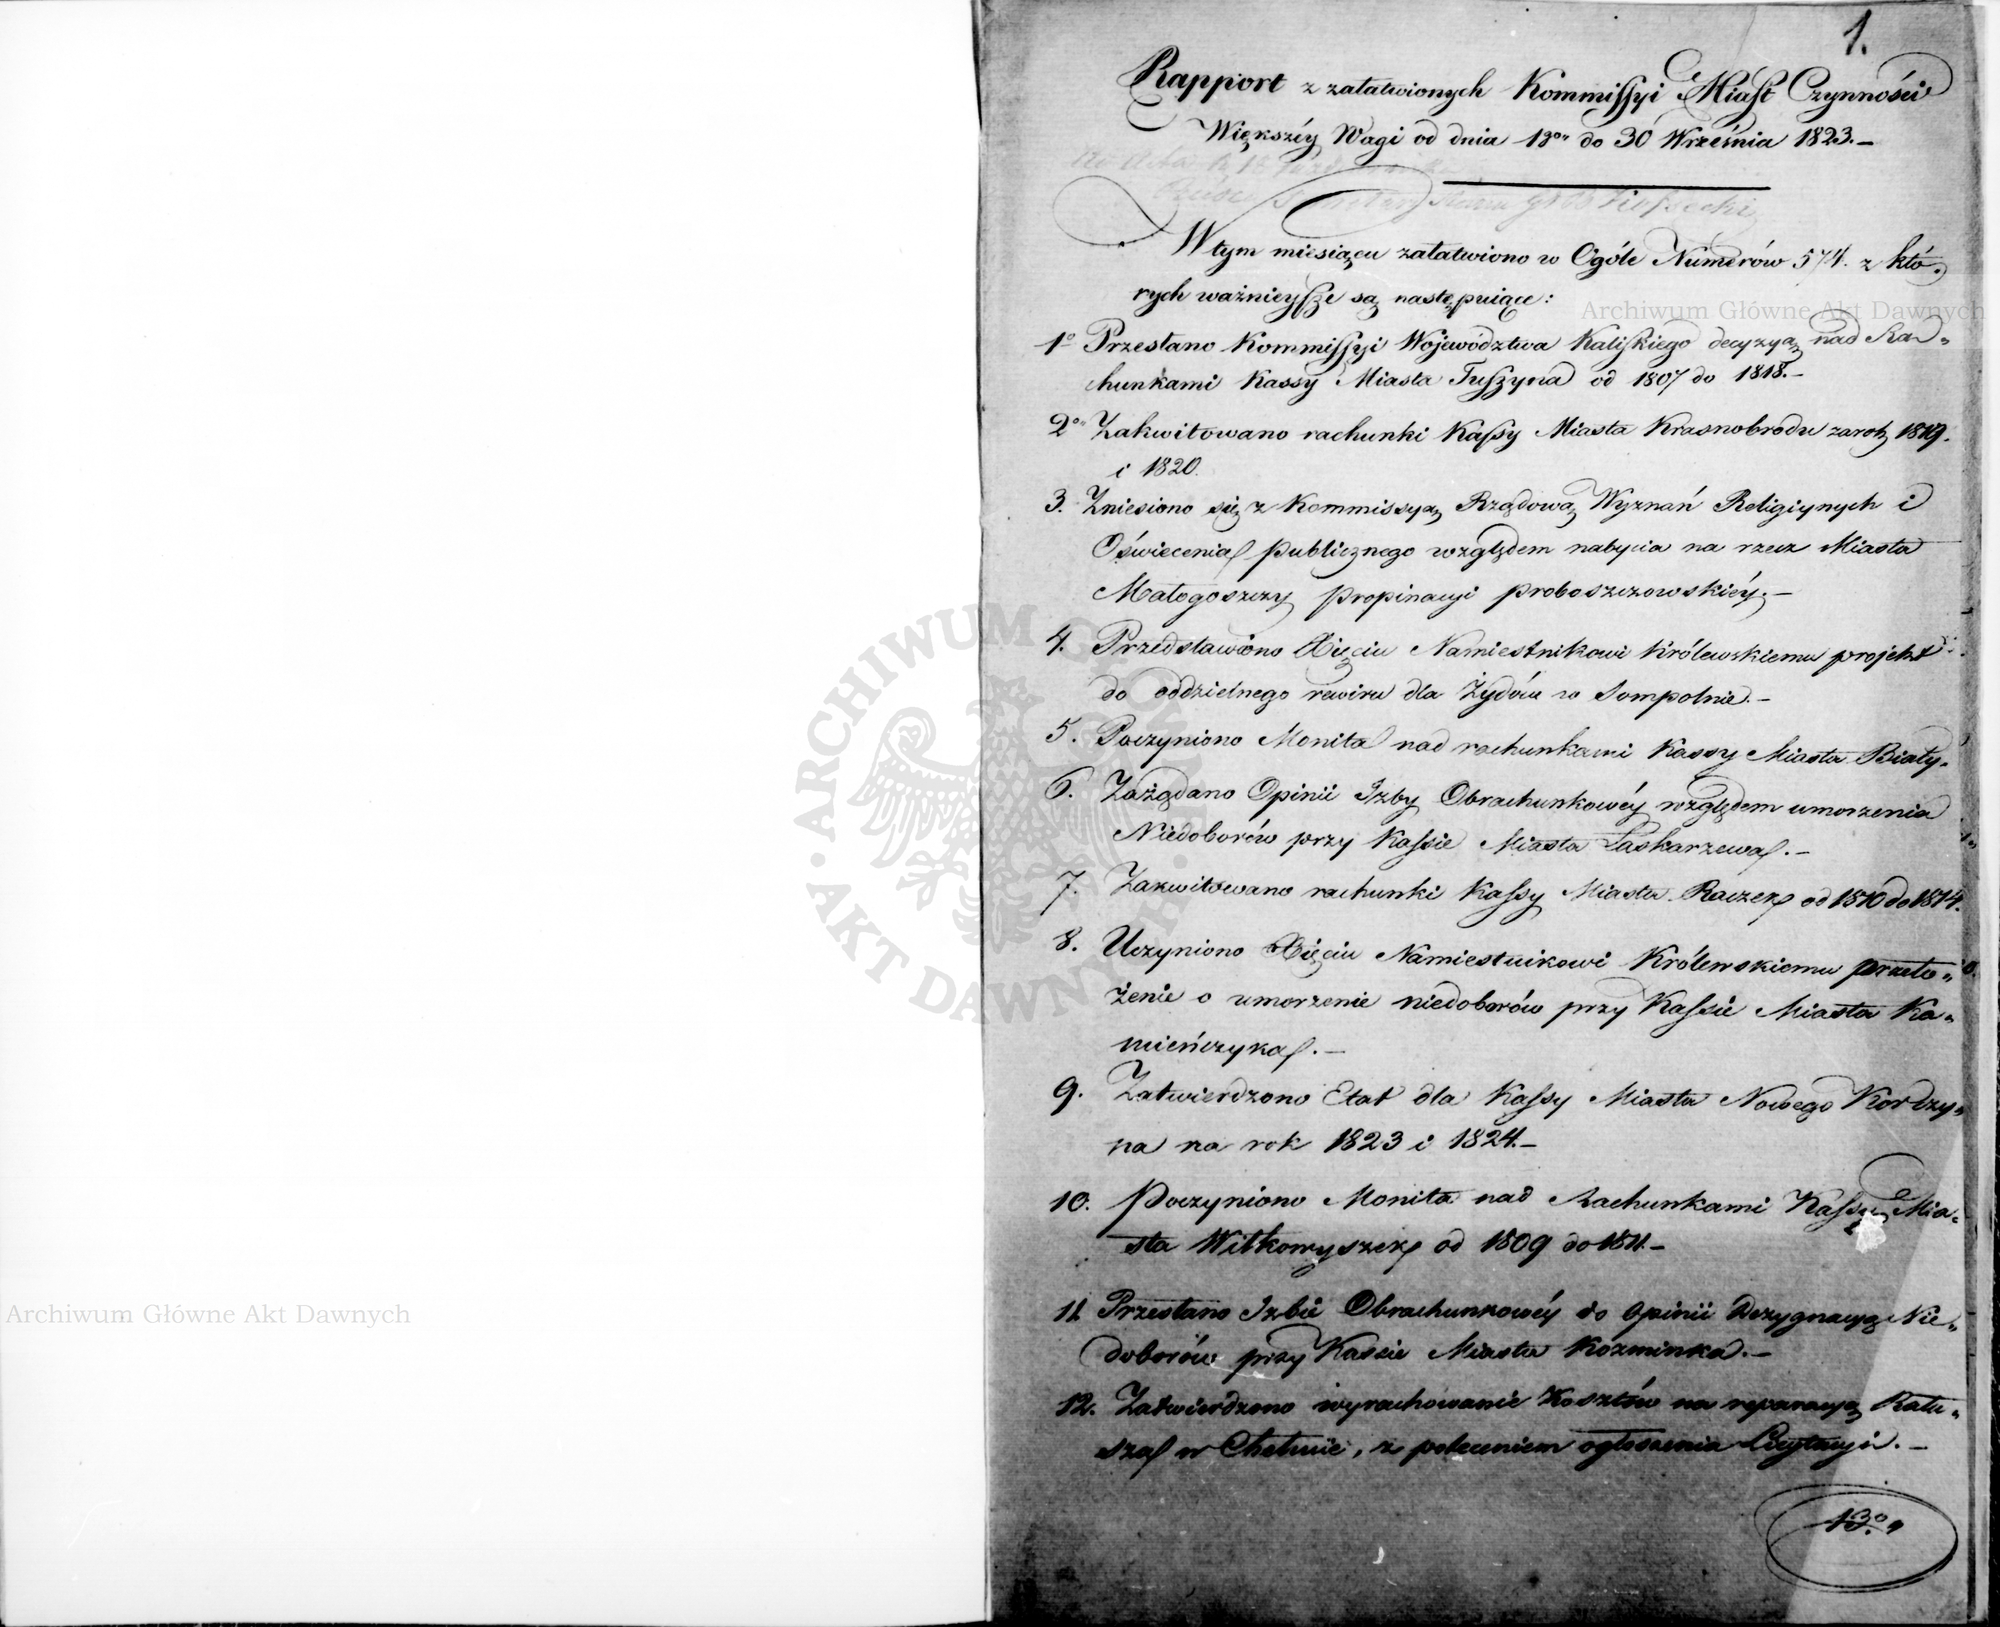 1.
Rapport z załatwionych Kommissyi Miast Czynności
Większéy Wagi od dnia 1go do 30 Września 1823.–
W tym miesiącu załatwiono w Ogóle Numerów 574. z któ„
rych ważnieysze są następuiące:
1o Przesłano Kommissyi Województwa Kaliskiego decyzyą nad Ra„
chunkami Kassy Miasta Tuszyna od 1807 do 1818.–
2o Zakwitowano rachunki Kassy Miasta Krasnobrodu za rok 1819.
i 1820.
3. Zniesiono się z Kommissyą Rządową Wyznań Religiynych i
Oświecenia publicznego względem nabycia na rzecz Miasta
Małogoszczy propinacyi proboszczowskiéy.–
4. Przedstawiono Xięciu Namiestnikowi Królewskiemu projekt
do oddzielnego rewiru dla Żydów w Sompolnie.–
5. Poczyniono Monita nad rachunkami Kassy Miasta Biały.
6. Zażądano Opinii Izby Obrachunkowéy względem umorzenia
Niedoborów przy Kassie Miasta Łaskarzewa.–
7. Zakwitowano rachunki Kassy Miasta Raczek od 1810 do 1814.
8. Uczyniono Xięciu Namiestnikowi Królewskiemu przeło„
żenie o umorzenie niedoborów przy Kassie Miasta Ka„
mieńczyka.–
9. Zatwierdzono Etat dla Kassy Miasta Nowego Kordzy„
na na rok 1823 i 1824.–
10. Poczyniono Monita nad Rachunkami Kassy Mia„
sta Wiłkowyszek od 1809 do 1811.–
11. Przesłano Izbie Obrachunkowéy do opinii Dezygnacyą Nie„
doborów przy Kassie Miasta Kozminka.–
12. Zatwierdzono wyrachowanie Kosztów na reparacyą Ratu„
sza w Chełmie, z poleceniem ogłoszenia Licytacyi.–
13o
Archiwum Główne Akt Dawnych
Archiwum Główne Akt Dawnych
ARCHIWUM GŁÓWNE · AKT DAWNYCH ·